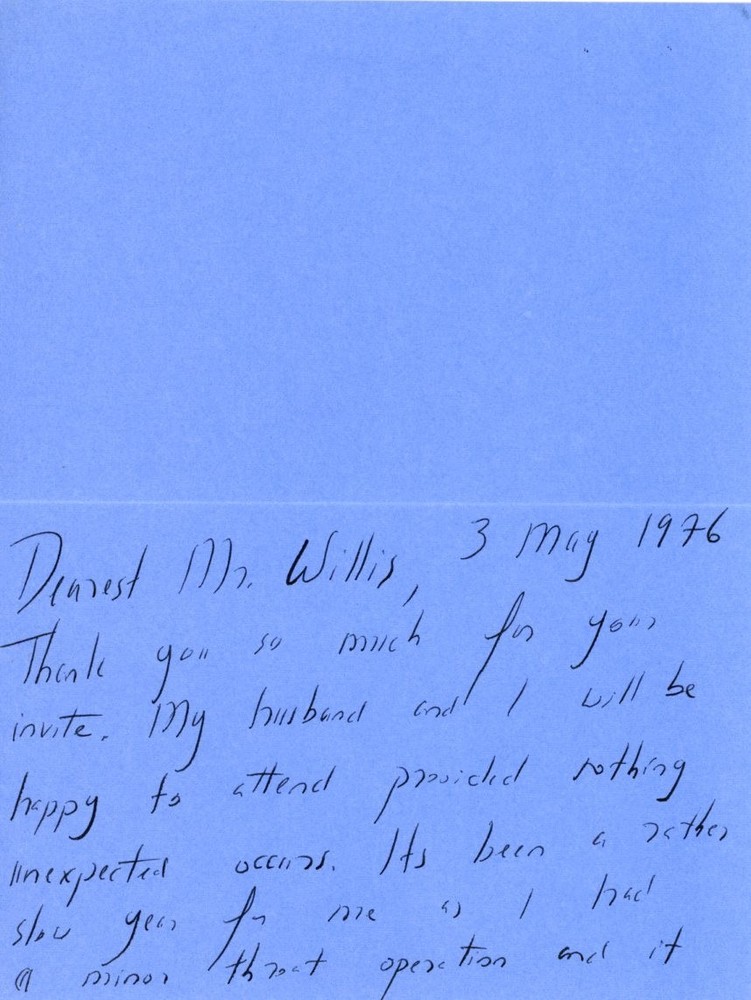 Dearest Mr. Willis, 3 May 1976
Thank you so much for your
invite. My husband and I will be
happy to attend provided nothing
unexpected occurs. Its been a rather
slow year for me as I had
a minor throat operation and it